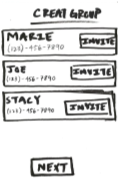 CREAT GROUP
MARIE
(123)-456-7890
INVITE
JOE
(123)-456-7890
INVITE
STACY
(123)-456-7890
INVITE
NEXT